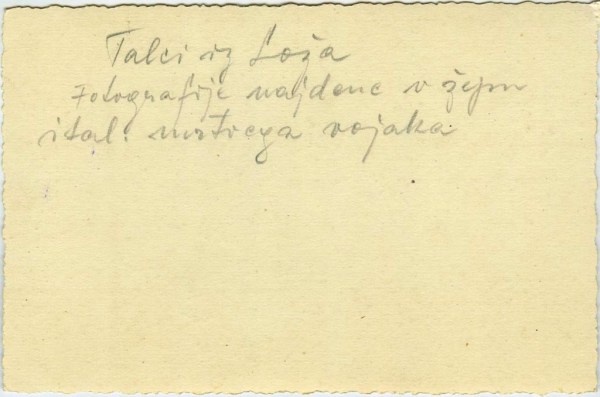 Talci iz Loža
Fotografije najdene v žepu
ital. mrtvega vojaka